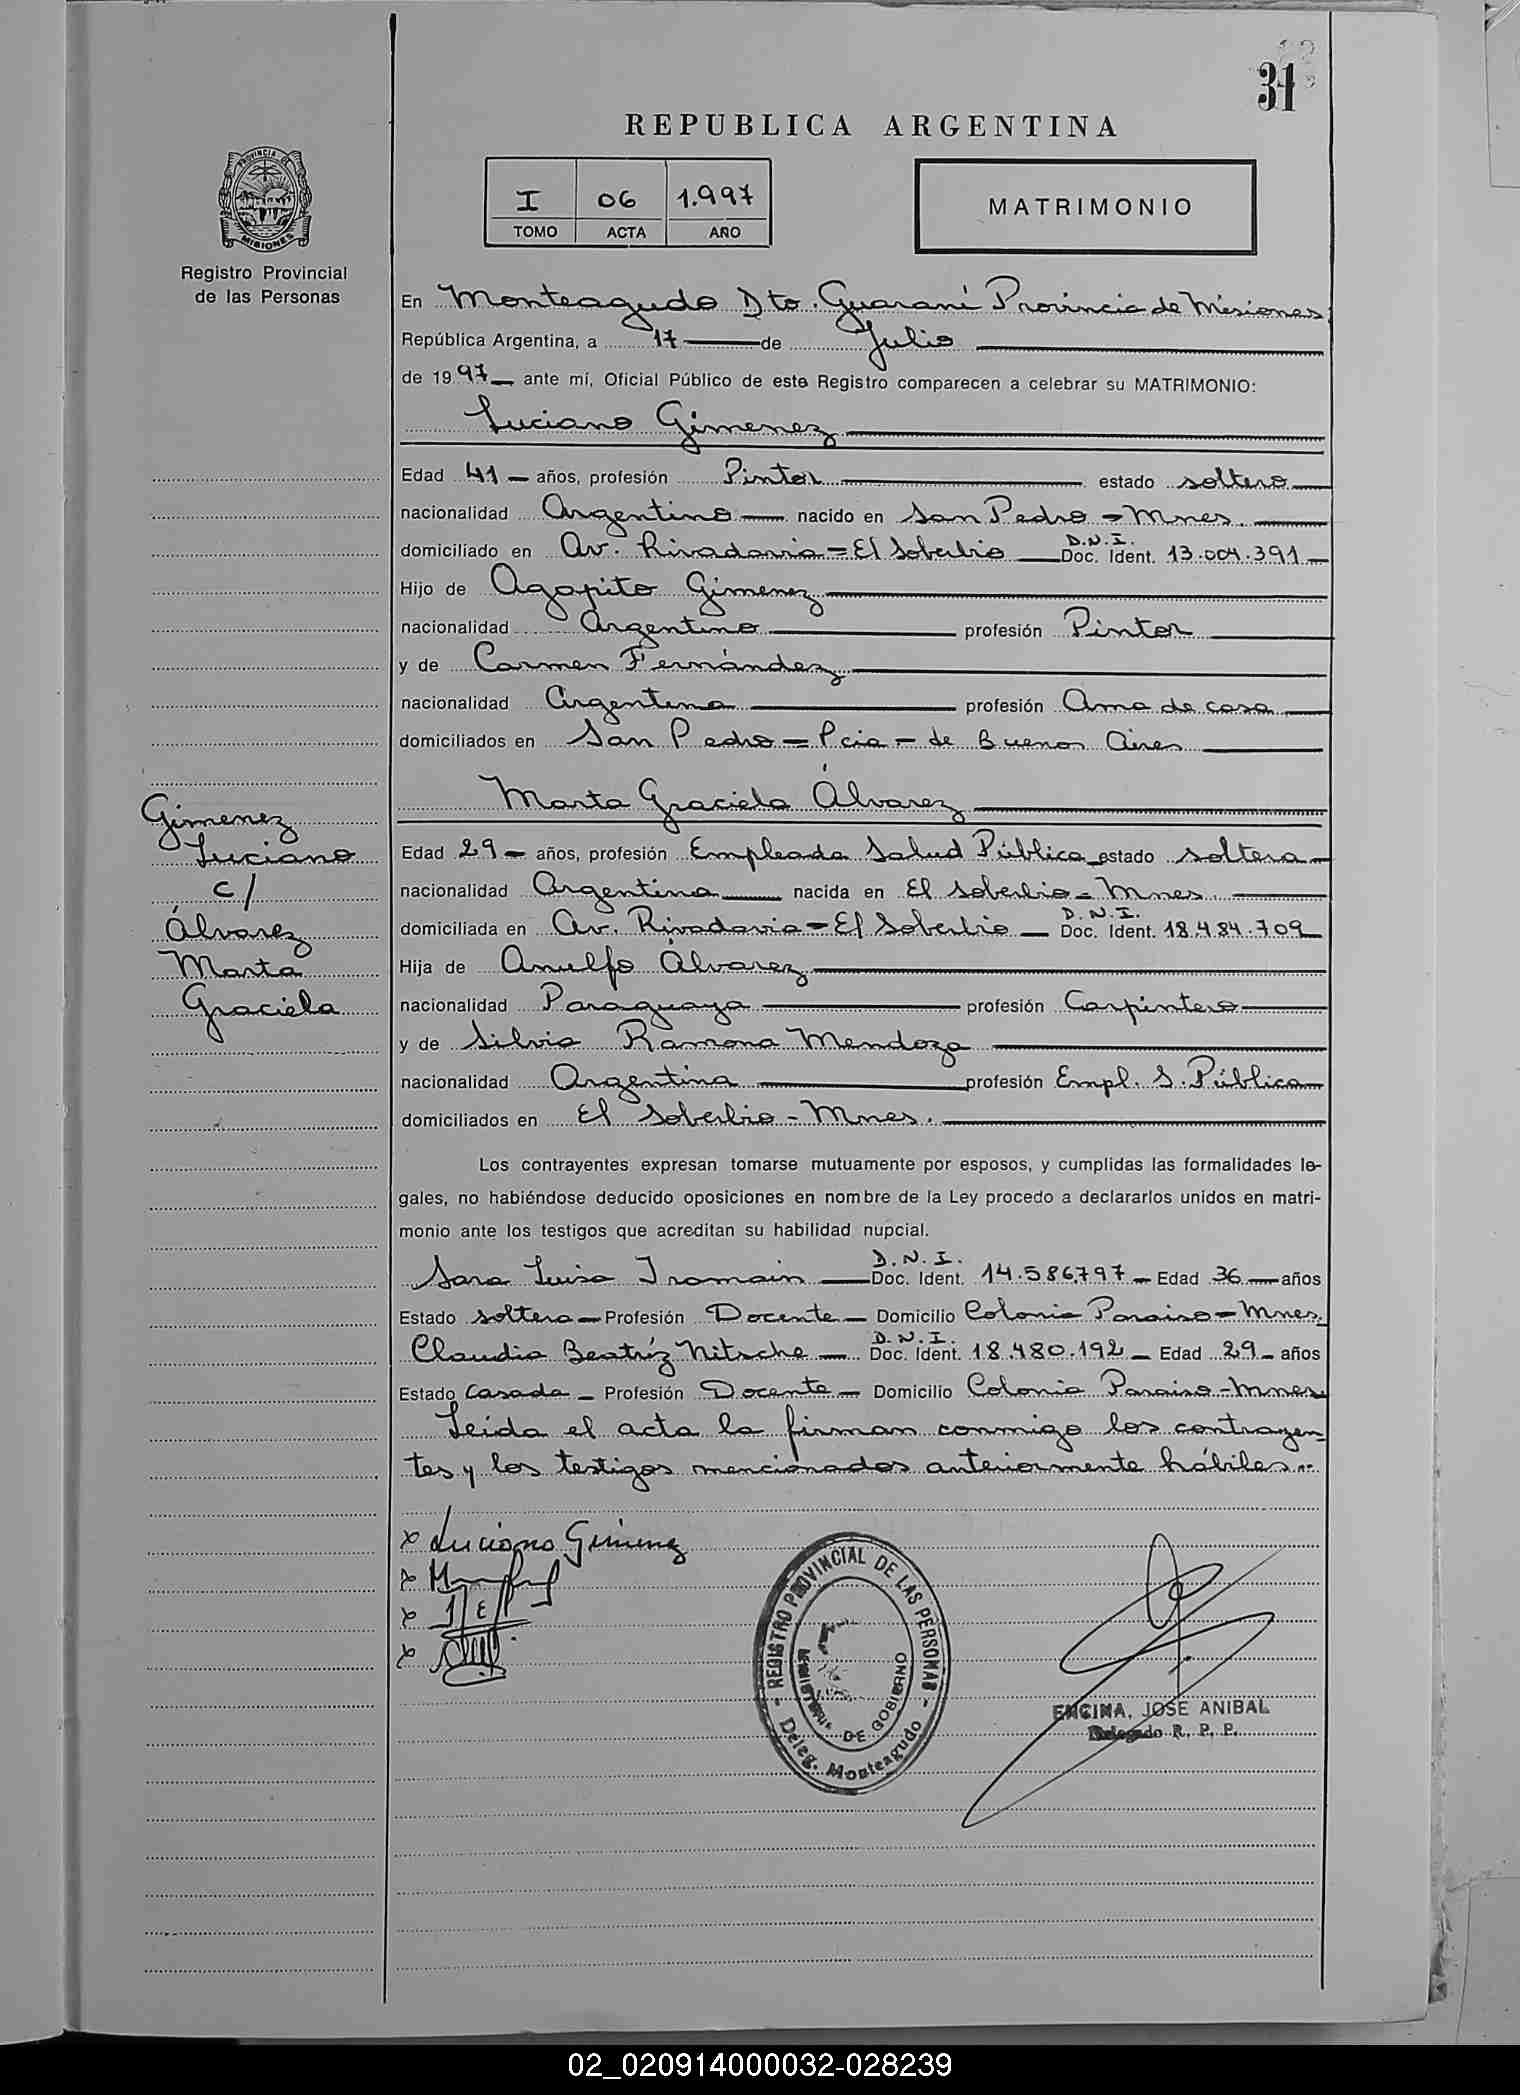 31
REPUBLICA ARGENTINA
I 06 1.997
TOMO ACTA AÑO
MATRIMONIO
PROVINCIA DE MISIONES
Registro Provincial
de las Personas
En Monteagudo Dto. Guaraní Provincia de Misiones
República Argentina, a 17 de Julio
de 1997 ante mí, Oficial Público de este Registro comparecen a celebrar su MATRIMONIO:
Luciano Gimenez
Edad 41 años, profesión Pintor estado soltero
nacionalidad Argentino nacido en San Pedro = Mnes.
domiciliado en Av. Rivadavia = El Soberbio D.N.I. Doc. Ident. 13.004.391
Hijo de Agapito Gimenez
nacionalidad Argentino profesión Pintor
y de Carmen Fernández
nacionalidad Argentina profesión Ama de casa
domiciliados en San Pedro = Pcia - de Buenos Aires
Marta Graciela Álvarez
Edad 29 años, profesión Empleada Salud Pública estado soltera
nacionalidad Argentina nacida en El Soberbio = Mnes.
domiciliada en Av. Rivadavia = El Soberbio D.N.I. Doc. Ident. 18.484.709
Hija de Anulfo Álvarez
nacionalidad Paraguaya profesión Carpintero
y de Silvia Ramona Mendoza
nacionalidad Argentina profesión Empl. S. Pública
domiciliados en El Soberbio - Mnes.
Gimenez
Luciano
c/
Álvarez
Marta
Graciela
Los contrayentes expresan tomarse mutuamente por esposos, y cumplidas las formalidades le-
gales, no habiéndose deducido oposiciones en nombre de la Ley procedo a declararlos unidos en matri-
monio ante los testigos que acreditan su habilidad nupcial.
Sara Luisa Tromain D.N.I. Doc. Ident. 14.586.797 Edad 36 años
Estado soltera Profesión Docente Domicilio Colonia Paraiso = Mnes.
Claudia Beatríz Nitsche D.N.I. Doc. Ident. 18.480.192 Edad 29 años
Estado casada Profesión Docente Domicilio Colonia Paraiso - Mnes.
Leída el acta la firman conmigo los contrayen-
tes y los testigos mencionados anteriormente hábiles.
x Luciano Gimenez
x
x
x
REGISTRO PROVINCIAL DE LAS PERSONAS
MINISTERIO DE GOBIERNO
Deleg. Monteagudo
ENCINA, JOSE ANIBAL
Delegado R. P. P.
02_020914000032-028239